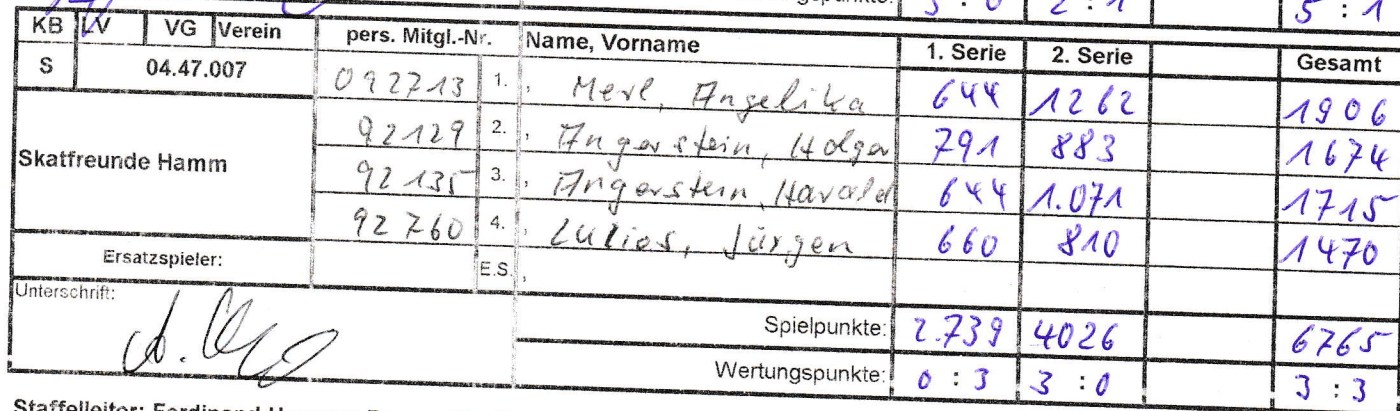 3 : 0 2 : 1 5 : 1
KB LV VG Verein pers. Mitgl.-Nr. Name, Vorname 1. Serie 2. Serie Gesamt
S 04.47.007
092713 1. , Merl, Angelika 644 1262 1906
92129 2. , Angerstein, Holger 791 883 1674
Skatfreunde Hamm
92135 3. , Angerstein, Harald 644 1.071 1715
92760 4. , Lulies, Jürgen 660 810 1470
Ersatzspieler: E.S. ,
Unterschrift:
Spielpunkte: 2.739 4026 6765
Wertungspunkte: 0 : 3 3 : 0 3 : 3